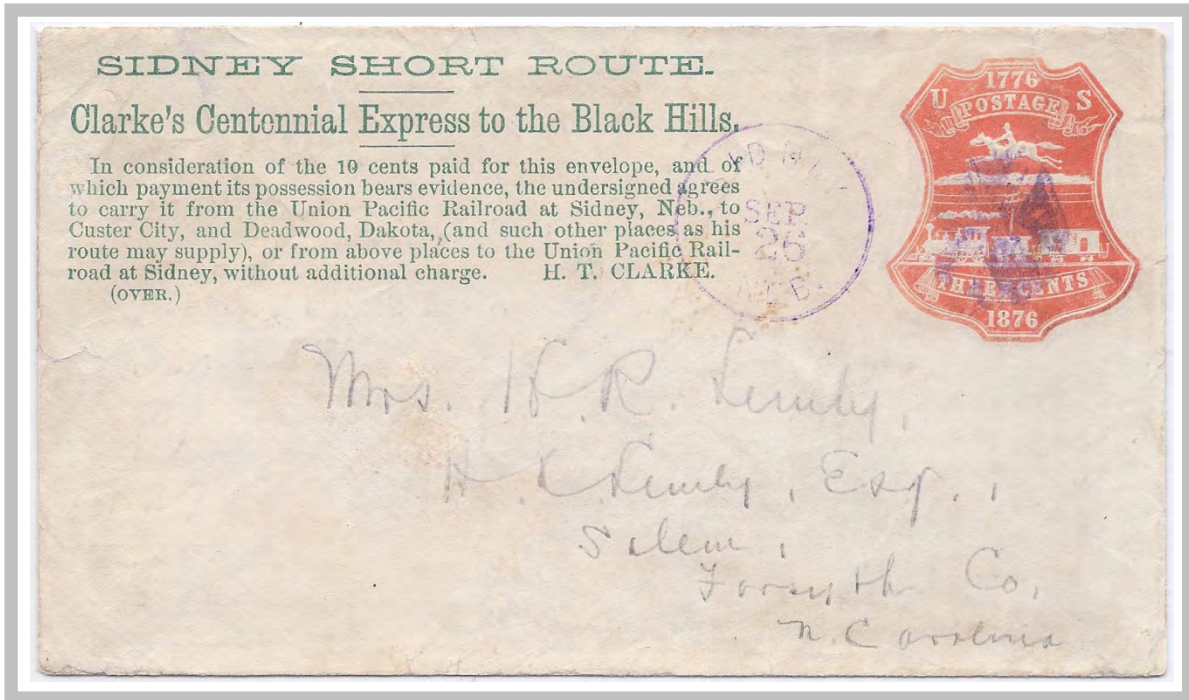 SIDNEY SHORT ROUTE.
Clarke's Centennial Express to the Black Hills.
In consideration of the 10 cents paid for this envelope, and of
which payment its possession bears evidence, the undersigned agrees
to carry it from the Union Pacific Railroad at Sidney, Neb., to
Custer City, and Deadwood, Dakota, (and such other places as his
route may supply), or from above places to the Union Pacific Rail-
road at Sidney, without additional charge. H. T. CLARKE.
(OVER.)
SIDNEY
SEP
26
NEB.
1776
U S
POSTAGE
THREE CENTS
1876
Mrs. H. R. Lemly,
H. Lemly, Esq.,
Salem,
Forsyth Co,
N. Carolina